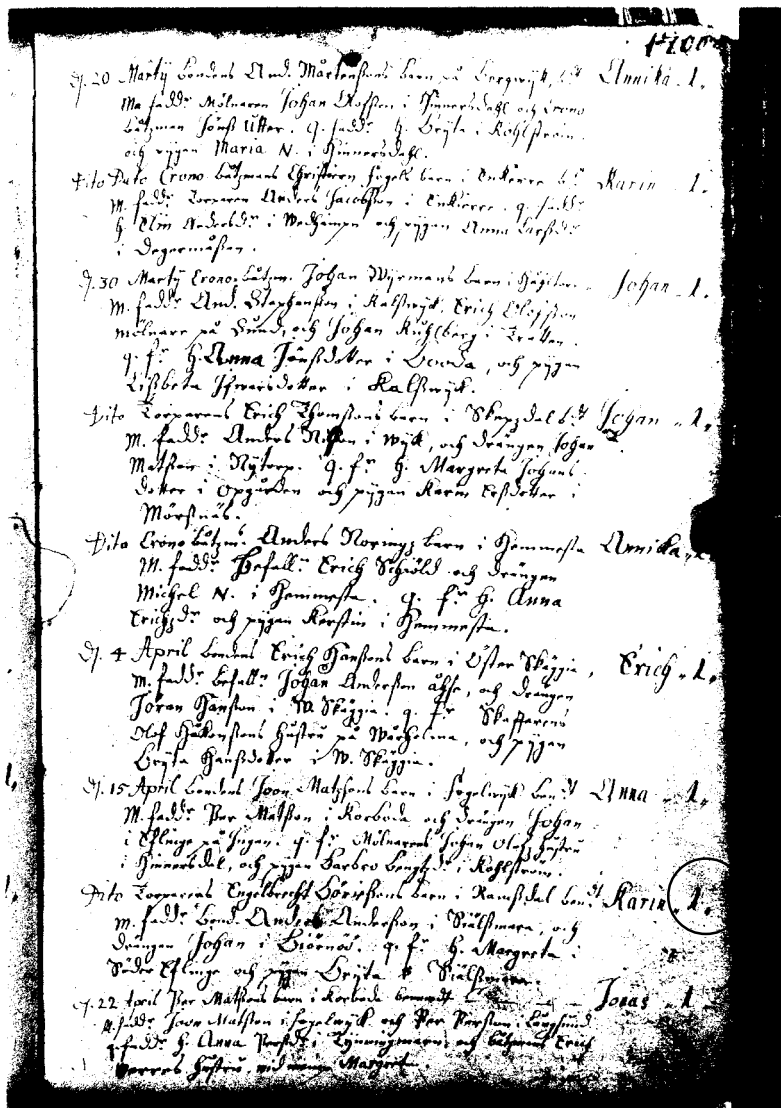 1700
20 Marty bondens And. Mårtensons barn på Bergwijk, bdt Annika 1.
M. fadd: Mölnaren Johan Olofson i Kinnersdahl och Crono
båtzman Jönß Utter. q. fadd: h. Bryta i Kohlström.
och pygan Maria N. i Kinnersdahl.
Dito Dato Crono båtzmans Christopher barn i Enkärre bdt Karin 1.
M. fadd: Torparen Anders Jacobson i Enkärre. q. fadd:
h. Elin Andersdr i och pygan Anna Larsdr
i Degermåßen.
30 Marty Crono båtzm. Johan Wijrmans barn i Johan 1.
M. fadd: And. Stephanson i Kalßwijk, Erich Olofsson
mölnare på Sund, och Johan Kuhlberg i Tratten.
q. f: h. Anna Jönßdotter i Booda, och pygan
Lißbeta Ifwarsdotter i Kalßwijk.
Dito Torparens Erich Thomsons barn i Skeppdal bdt Johan 1.
M. fadd: Anders Nilson i Wijk, och drängen Johan
Matson i Nytorp. q. f: h. Margreta Johans
dotter i Opgården och pygan Karin Erßdotter i
Mörtnäs.
Dito Crono båtzm. Anders Norings barn i Hemmesta Annika 1.
M. fadd: Befall: Erich Schiöld och drängen
Michel N. i Hemmesta. q. f: h. Anna
Erichzdr och pygan Kerstin i Hemmesta.
4 April bondens Erich Hansons barn i Öster Skäggia, Erich 1.
M. fadd: befall: Johan Anderson och drängen
Jöran Hanson i W. Skäggia. q. fr Skaffarens
Olof Håkonsons hustru på Warholma, och pygan
Bryta Hanßdotter i W. Skäggia.
15 April bondens Joon Matzsons barn i Fogelwijk bendt Anna 1.
M. fadd: Per Matson i Korboda och drängen Johan
i Eflinge på Ingan. q. f: Mölnarens Johan Olofz hustru
i Kinnersdal, och pygan Barbro Bengtzdr i Kohlström.
Dito Torparens Engelbrecht barn i Ramßdal bendt Karin 1.
M. fadd: bond. Anders Anderson i Siälßmara, och
drängen Johan i Biörnö. q. f: h. Margreta i
Söder Eflinge och pygan Bryta i Siälßmara.
22 April Per Matsons barn i Korboda benemdt Jonas 1
M. fadd: Joon Matson i Fogelwijk och Per Person i Långsund
q. fadd: h. Anna Persdr i och båtzmans Erich
hustru, wid namn Margret.